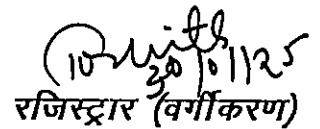 30/01/25
रजिस्ट्रार (वर्गीकरण)